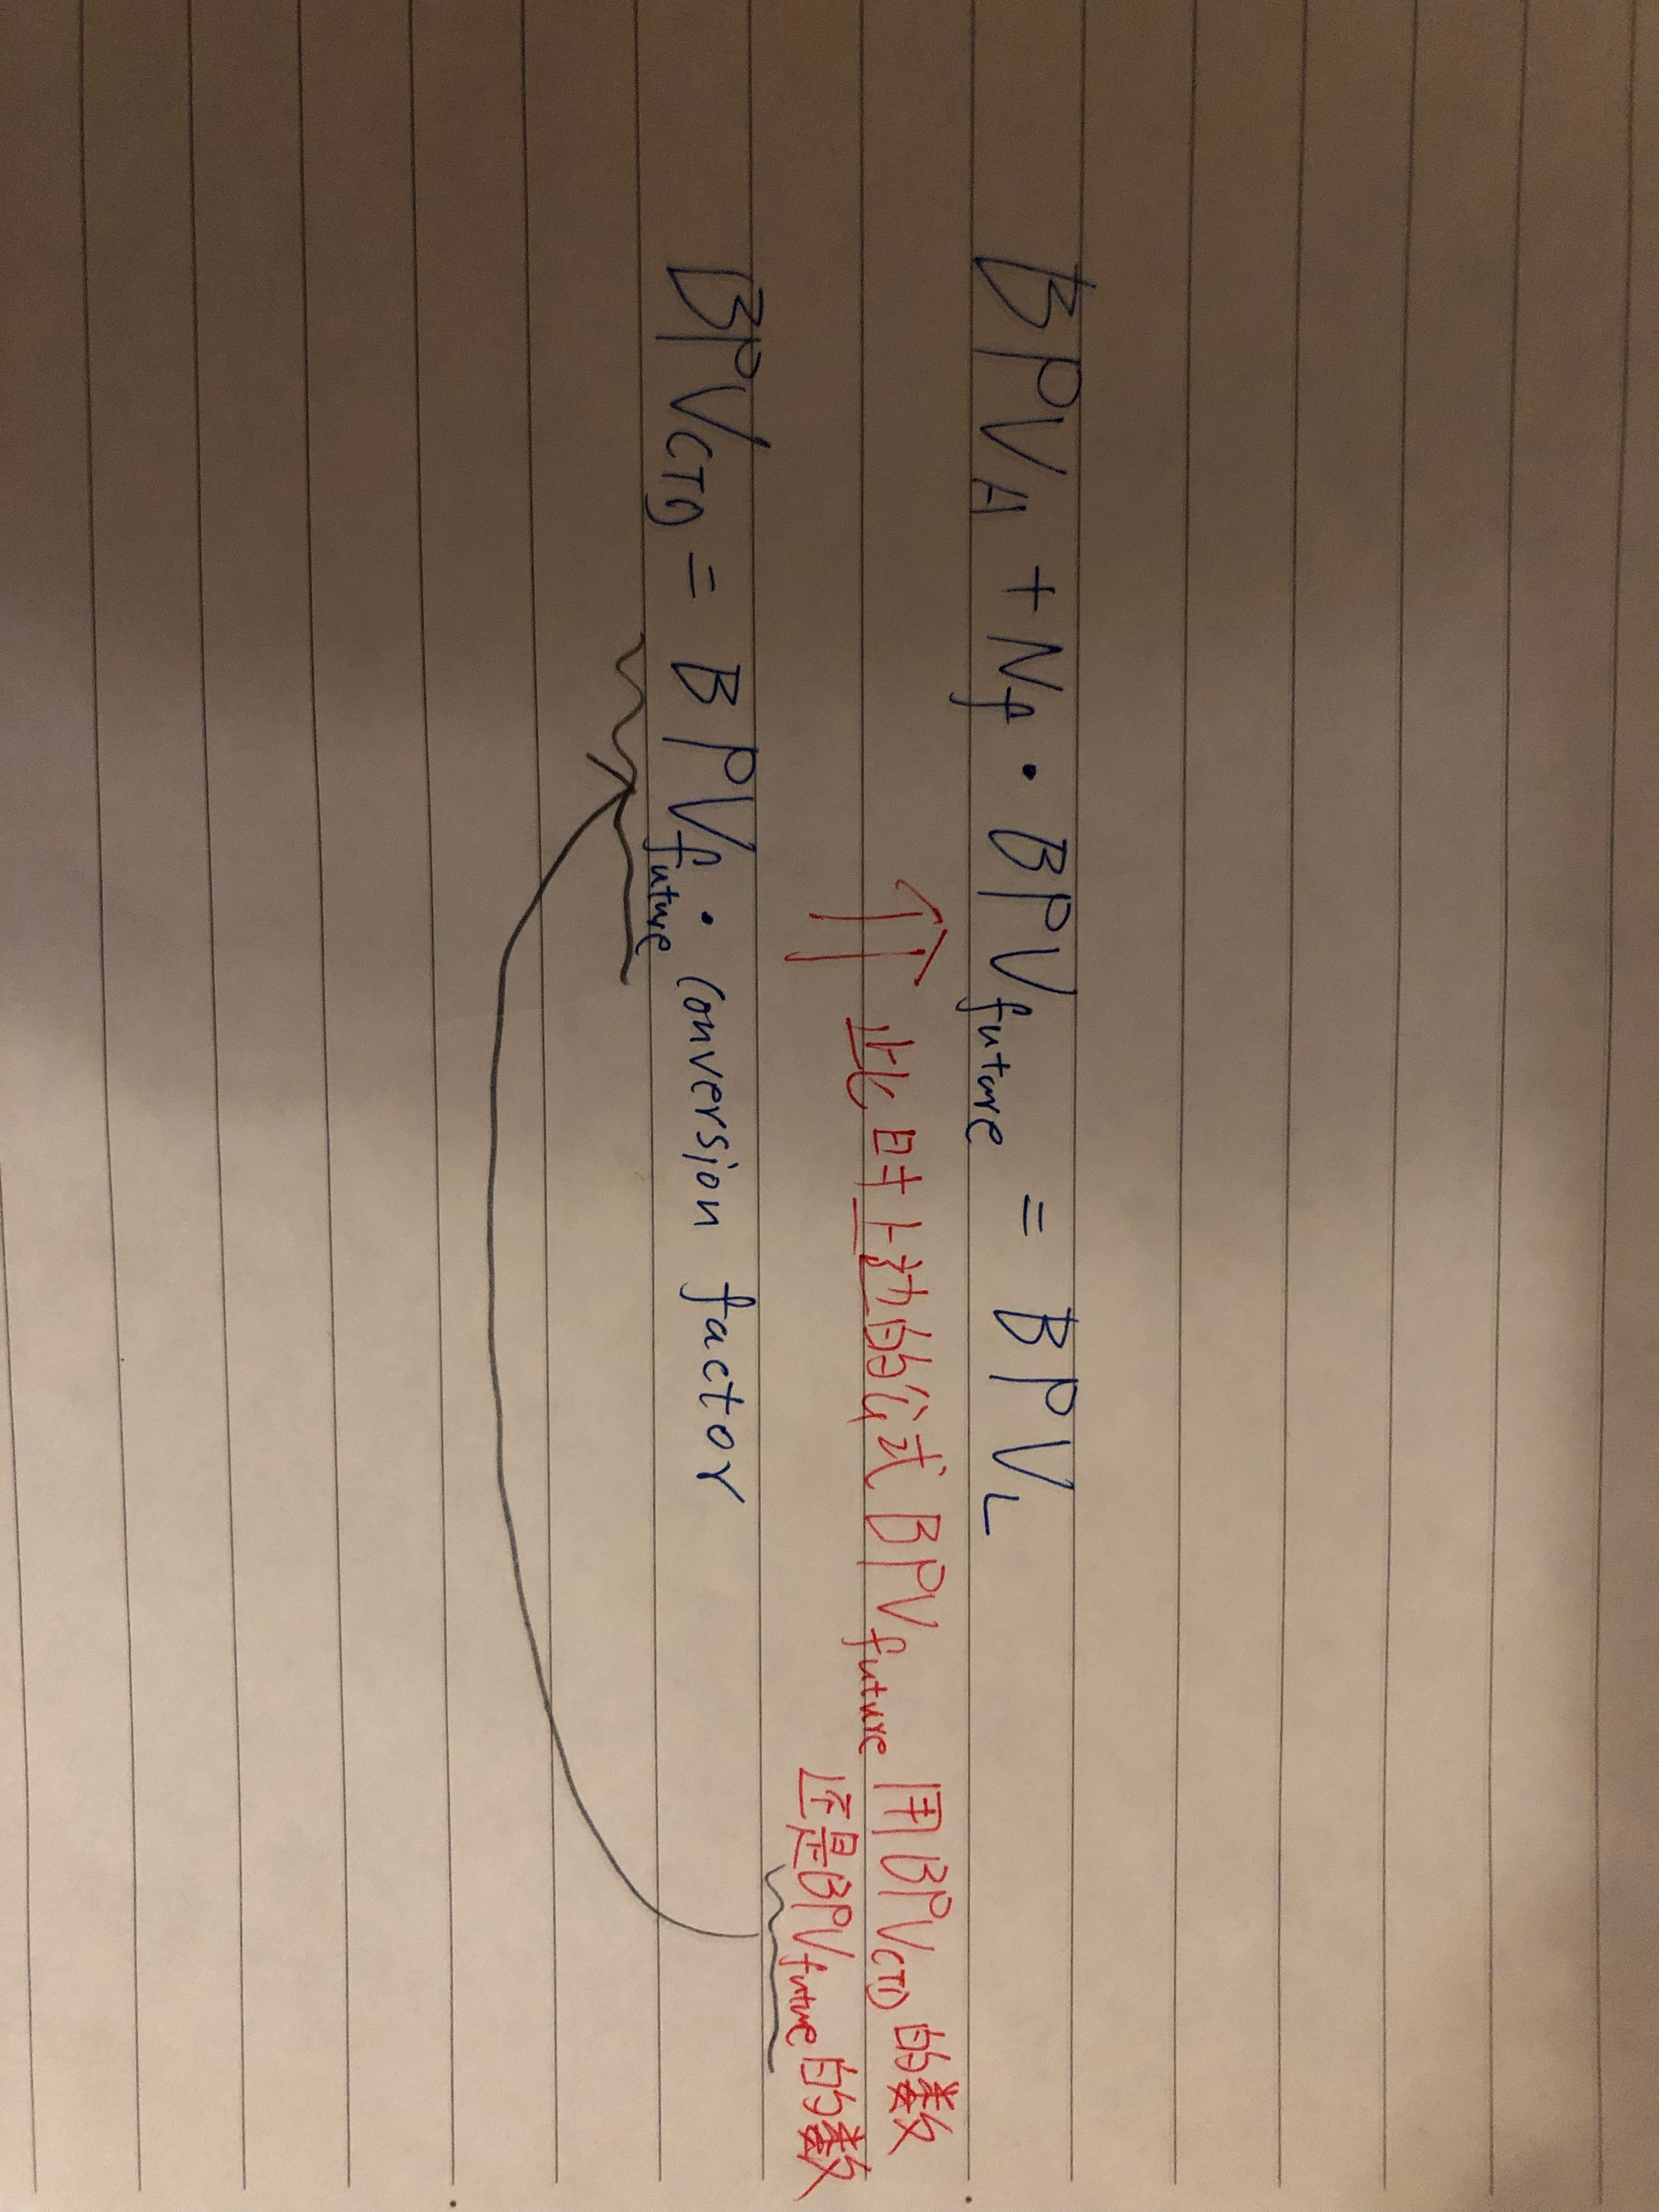 BPV_A + N_f · BPV_future = BPV_L
⇑ 此时上边的公式 BPV_future 用BPV_CTD的数
还是BPV_future的数
BPV_CTD = BPV_future · Conversion factor